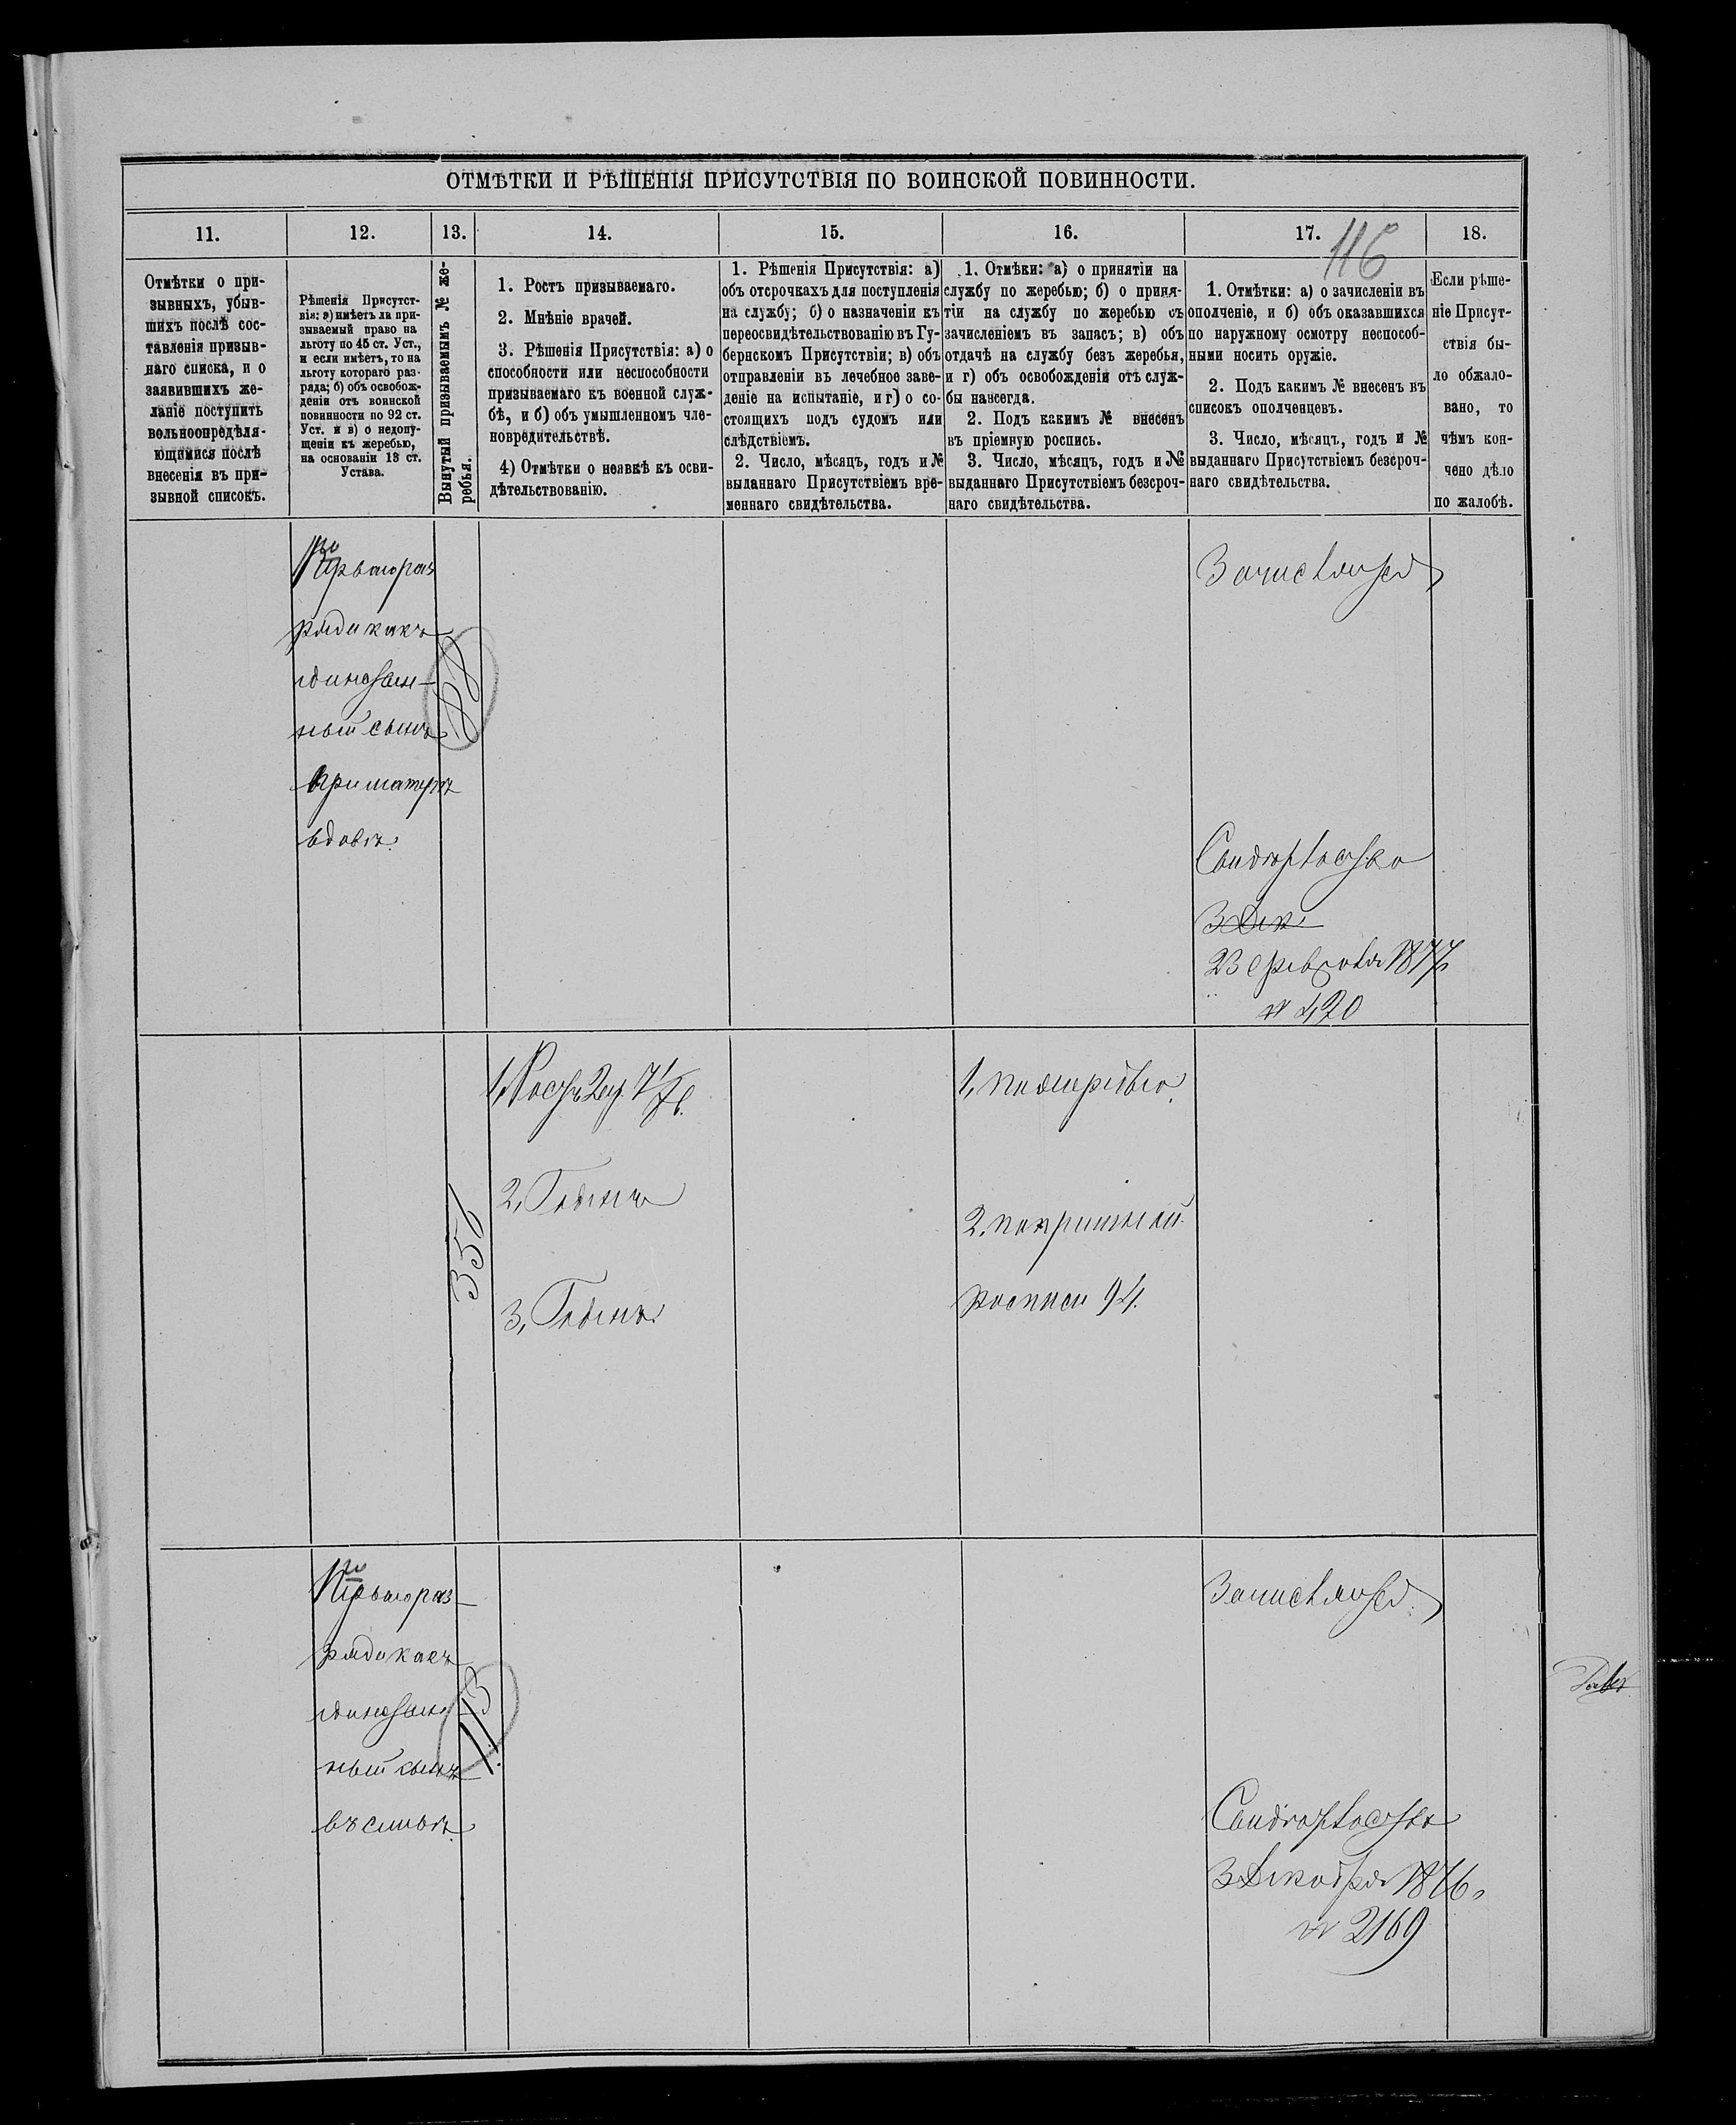 ОТМѢТКИ И РѢШЕНІЯ ПРИСУТСТВІЯ ПО ВОИНСКОЙ ПОВИННОСТИ.
116
11.
12.
13.
14.
15.
16.
17.
18.
Отмѣтки о при-
зывныхъ, убыв-
шихъ послѣ сос-
тавленія призыв-
наго списка, и о
заявившихъ же-
ланіе поступить
вольноопредѣля-
ющимися послѣ
внесенія въ при-
зывной списокъ.
Рѣшенія Присутст-
вія: а) имѣетъ ли при-
зываемый право на
льготу по 45 ст. Уст.,
и если имѣетъ, то на
льготу котораго раз-
ряда; б) объ освобож-
деніи отъ воинской
повинности по 92 ст.
Уст. и в) о недопу-
щеніи къ жеребью,
на основаніи 13 ст.
Устава.
Вынутый призываемымъ № же-
ребья.
1. Ростъ призываемаго.
2. Мнѣніе врачей.
3. Рѣшенія Присутствія: а) о
способности или неспособности
призываемаго къ военной служ-
бѣ, и б) объ умышленномъ чле-
новредительствѣ.
4) Отмѣтки о неявкѣ къ осви-
дѣтельствованію.
1. Рѣшенія Присутствія: а)
объ отсрочкахъ для поступленія
на службу; б) о назначеніи къ
переосвидѣтельствованію въ Гу-
бернскомъ Присутствіи; в) объ
отправленіи въ лечебное заве-
деніе на испытаніе, и г) о со-
стоящихъ подъ судомъ или
слѣдствіемъ.
2. Число, мѣсяцъ, годъ и №
выданнаго Присутствіемъ вре-
меннаго свидѣтельства.
1. Отмѣки: а) о принятіи на
службу по жеребью; б) о приня-
тіи на службу по жеребью съ
зачисленіемъ въ запасъ; в) объ
отдачѣ на службу безъ жеребья,
и г) объ освобожденіи отъ служ-
бы навсегда.
2. Подъ какимъ № внесенъ
въ пріемную роспись.
3. Число, мѣсяцъ, годъ и №
выданнаго Присутствіемъ безсроч-
наго свидѣтельства.
1. Отмѣтки: а) о зачисленіи въ
ополченіе, и б) объ оказавшихся
по наружному осмотру неспособ-
ными носить оружіе.
2. Подъ какимъ № внесенъ въ
списокъ ополченцевъ.
3. Число, мѣсяцъ, годъ и №
выданнаго Присутствіемъ безсроч-
наго свидѣтельства.
Если рѣше-
ніе Присут-
ствія бы-
ло обжало-
вано, то
чѣмъ кон-
чено дѣло
по жалобѣ.
Перваго раз
ряда какъ
единствен-
ный сынъ
при матери
вдовѣ.
88
Зачисляется
Свидѣтельство
3 Дек
23 февраля 1877
№ 420
356
1, Ростъ 2 ар. 7 1/ в.
2, Годенъ
3, Годенъ
1, по жеребью.
2. по пріемной
росписи 94.
Перваго раз-
ряда какъ
единствен
ный сынъ
въ семьѣ.
113
Зачисляется
Свидѣтельство
3 Декабря 1876
№ 2169